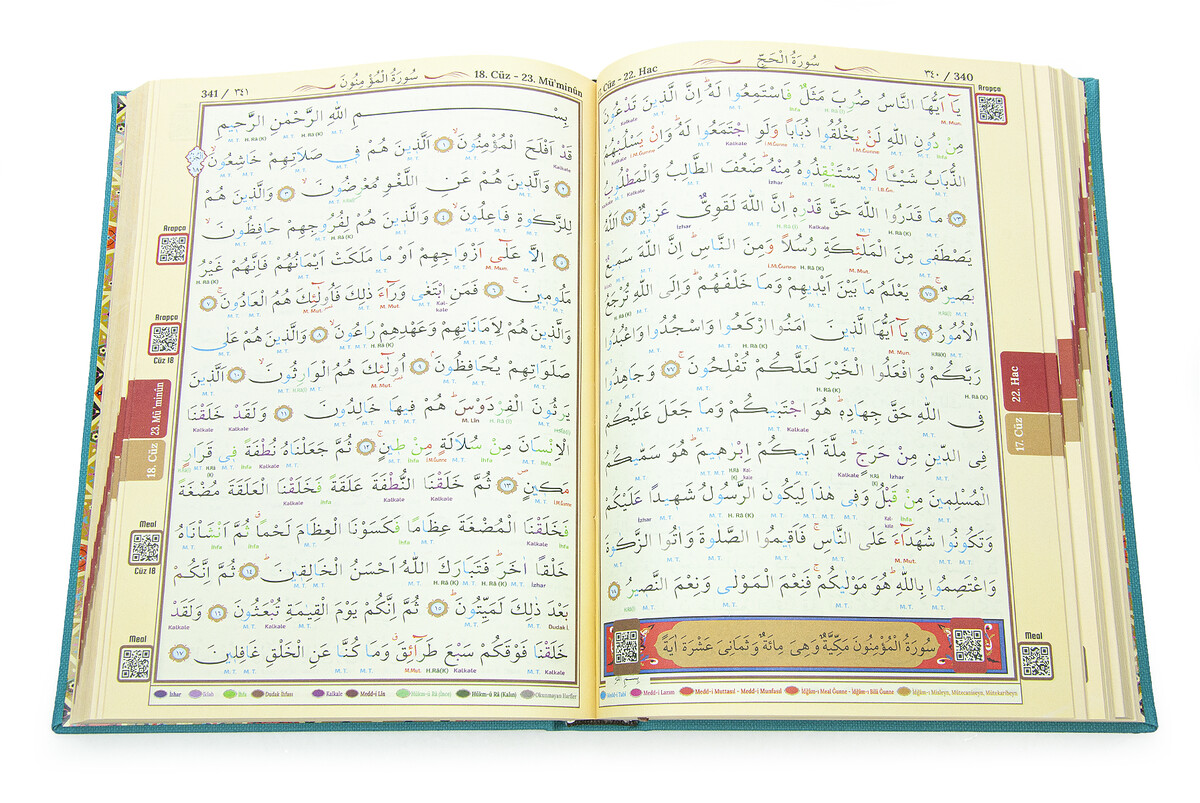 ٣٤٠ / 340
سُورَةُ الْحَجِّ
Cüz - 22. Hac
يَٓا اَيُّهَا النَّاسُ ضُرِبَ مَثَلٌ فَاسْتَمِعُوا لَهُۜ اِنَّ الَّذ۪ينَ تَدْعُونَ
مِنْ دُونِ اللّٰهِ لَنْ يَخْلُقُوا ذُبَابًا وَلَوِ اجْتَمَعُوا لَهُۜ وَاِنْ يَسْلُبْهُمُ
الذُّبَابُ شَيْـًٔا لَا يَسْتَنْقِذُوهُ مِنْهُۜ ضَعُفَ الطَّالِبُ وَالْمَطْلُوبُ
﴿٧٣﴾ مَا قَدَرُوا اللّٰهَ حَقَّ قَدْرِه۪ۜ اِنَّ اللّٰهَ لَقَوِيٌّ عَز۪يزٌ ﴿٧٤﴾ اَللّٰهُ
يَصْطَف۪ي مِنَ الْمَلٰٓئِكَةِ رُسُلًا وَمِنَ النَّاسِۜ اِنَّ اللّٰهَ سَم۪يعٌ
بَص۪يرٌۚ ﴿٧٥﴾ يَعْلَمُ مَا بَيْنَ اَيْد۪يهِمْ وَمَا خَلْفَهُمْۜ وَاِلَى اللّٰهِ تُرْجَعُ
الْاُمُورُ ﴿٧٦﴾ يَٓا اَيُّهَا الَّذ۪ينَ اٰمَنُوا ارْكَعُوا وَاسْجُدُوا وَاعْبُدُوا
رَبَّكُمْ وَافْعَلُوا الْخَيْرَ لَعَلَّكُمْ تُفْلِحُونَۚ ﴿٧٧﴾ وَجَاهِدُوا
فِي اللّٰهِ حَقَّ جِهَادِه۪ۜ هُوَ اجْتَبٰيكُمْ وَمَا جَعَلَ عَلَيْكُمْ
فِي الدّ۪ينِ مِنْ حَرَجٍۜ مِلَّةَ اَب۪يكُمْ اِبْرٰه۪يمَۜ هُوَ سَمّٰيكُمُ
الْمُسْلِم۪ينَ مِنْ قَبْلُ وَف۪ي هٰذَا لِيَكُونَ الرَّسُولُ شَه۪يدًا عَلَيْكُمْ
وَتَكُونُوا شُهَدَٓاءَ عَلَى النَّاسِۚ فَاَق۪يمُوا الصَّلٰوةَ وَاٰتُوا الزَّكٰوةَ
وَاعْتَصِمُوا بِاللّٰهِۜ هُوَ مَوْلٰيكُمْۚ فَنِعْمَ الْمَوْلٰى وَنِعْمَ النَّص۪يرُ ﴿٧٨﴾
سُورَةُ الْمُؤْمِنُونَ مَكِّيَّةٌ وَهِيَ مِائَةٌ وَثَمَانِي عَشْرَةَ اٰيَةً
Arapça
22. Hac
17. Cüz
Meal
Medd-i Tabî Medd-i Lazım Medd-i Muttasıl - Medd-i Munfasıl İdğâm-ı Meal Ğunne - İdğâm-ı Bilâ Ğunne İdğâm-ı Misleyn, Mütecaniseyn, Mütekaribeyn
18. Cüz - 23. Mü'minûn
سُورَةُ الْمُؤْمِنُونَ
341 / ٣٤١
بِسْــــــمِ اللّٰهِ الرَّحْمٰنِ الرَّح۪يمِ
قَدْ اَفْلَحَ الْمُؤْمِنُونَۙ ﴿١﴾ اَلَّذ۪ينَ هُمْ ف۪ي صَلَاتِهِمْ خَاشِعُونَۙ
﴿٢﴾ وَالَّذ۪ينَ هُمْ عَنِ اللَّغْوِ مُعْرِضُونَۙ ﴿٣﴾ وَالَّذ۪ينَ هُمْ
لِلزَّكٰوةِ فَاعِلُونَۙ ﴿٤﴾ وَالَّذ۪ينَ هُمْ لِفُرُوجِهِمْ حَافِظُونَۙ
﴿٥﴾ اِلَّا عَلٰٓى اَزْوَاجِهِمْ اَوْ مَا مَلَكَتْ اَيْمَانُهُمْ فَاِنَّهُمْ غَيْرُ
مَلُوم۪ينَۚ ﴿٦﴾ فَمَنِ ابْتَغٰى وَرَٓاءَ ذٰلِكَ فَاُو۬لٰٓئِكَ هُمُ الْعَادُونَۚ ﴿٧﴾
وَالَّذ۪ينَ هُمْ لِاَمَانَاتِهِمْ وَعَهْدِهِمْ رَاعُونَۙ ﴿٨﴾ وَالَّذ۪ينَ هُمْ عَلٰى
صَلَوَاتِهِمْ يُحَافِظُونَۢ ﴿٩﴾ اُو۬لٰٓئِكَ هُمُ الْوَارِثُونَۙ ﴿١٠﴾ اَلَّذ۪ينَ
يَرِثُونَ الْفِرْدَوْسَۜ هُمْ ف۪يهَا خَالِدُونَ ﴿١١﴾ وَلَقَدْ خَلَقْنَا
الْاِنْسَانَ مِنْ سُلَالَةٍ مِنْ ط۪ينٍۚ ﴿١٢﴾ ثُمَّ جَعَلْنَاهُ نُطْفَةً ف۪ي قَرَارٍ
مَك۪ينٍۖ ﴿١٣﴾ ثُمَّ خَلَقْنَا النُّطْفَةَ عَلَقَةً فَخَلَقْنَا الْعَلَقَةَ مُضْغَةً
فَخَلَقْنَا الْمُضْغَةَ عِظَامًا فَكَسَوْنَا الْعِظَامَ لَحْمًاۗ ثُمَّ اَنْشَأْنَاهُ
خَلْقًا اٰخَرَۜ فَتَبَارَكَ اللّٰهُ اَحْسَنُ الْخَالِق۪ينَۜ ﴿١٤﴾ ثُمَّ اِنَّكُمْ
بَعْدَ ذٰلِكَ لَمَيِّتُونَۜ ﴿١٥﴾ ثُمَّ اِنَّكُمْ يَوْمَ الْقِيٰمَةِ تُبْعَثُونَ ﴿١٦﴾ وَلَقَدْ
خَلَقْنَا فَوْقَكُمْ سَبْعَ طَرَٓائِقَۗ وَمَا كُنَّا عَنِ الْخَلْقِ غَافِل۪ينَ ﴿١٧﴾
Arapça
Arapça
Cüz 18
23. Mü'minûn
18. Cüz
Meal
Cüz 18
Meal
İzhar İklab İhfa Dudak İhfası Kalkale Medd-i Lîn Hükm-ü Râ (İnce) Hükm-ü Râ (Kalın) Okunmayan Harfler